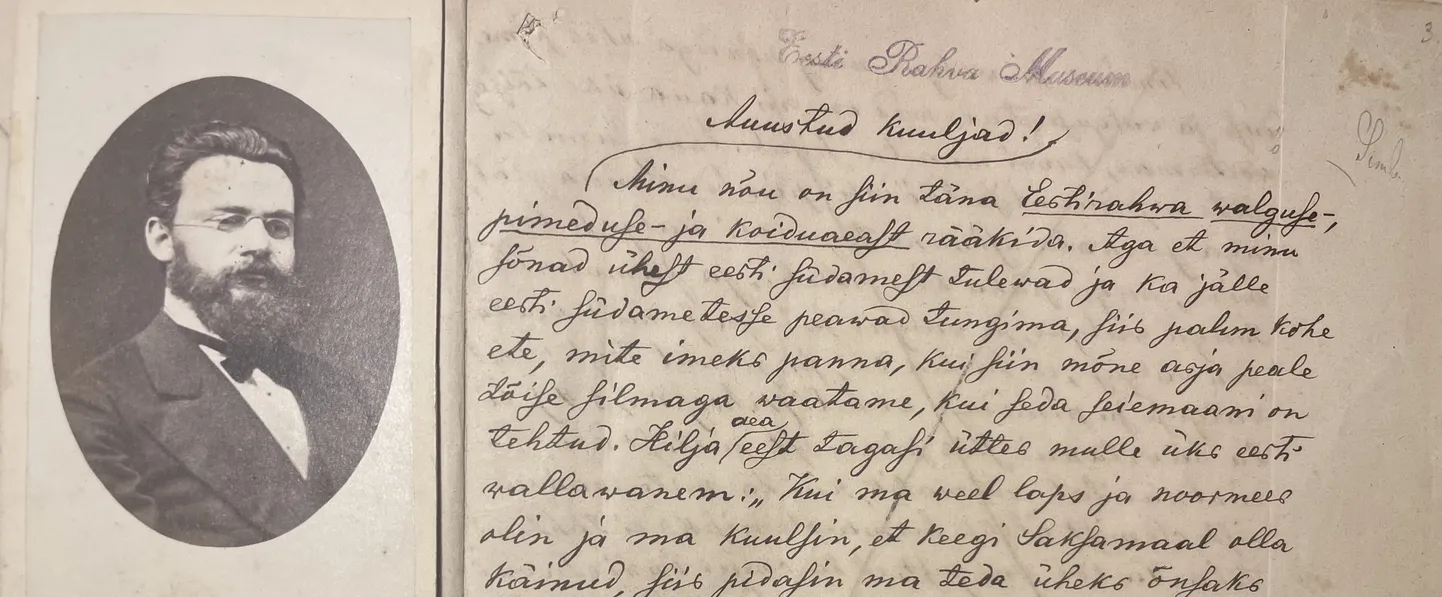 3.
Eesti Rahva Museum
Auustud kuuljad!
Minu nõu on siin täna Eestirahwa walguse-,
pimeduse- ja koiduaeast rääkida. Aga et minu
sõnad ühest eesti südamest tulewad ja ka jälle
eesti südametesse peawad tungima, siis palun kohe
ete, mite imeks panna, kui siin mõne asja peale
tõise silmaga waatame, kui seda seiemaani on
tehtud. Hilja aea eest tagasi üttes mulle üks eesti
wallawanem: „Kui ma weel laps ja noormees
olin ja ma kuulsin, et keegi Saksamaal olla
käinud, siis pidasin ma teda üheks õnsaks